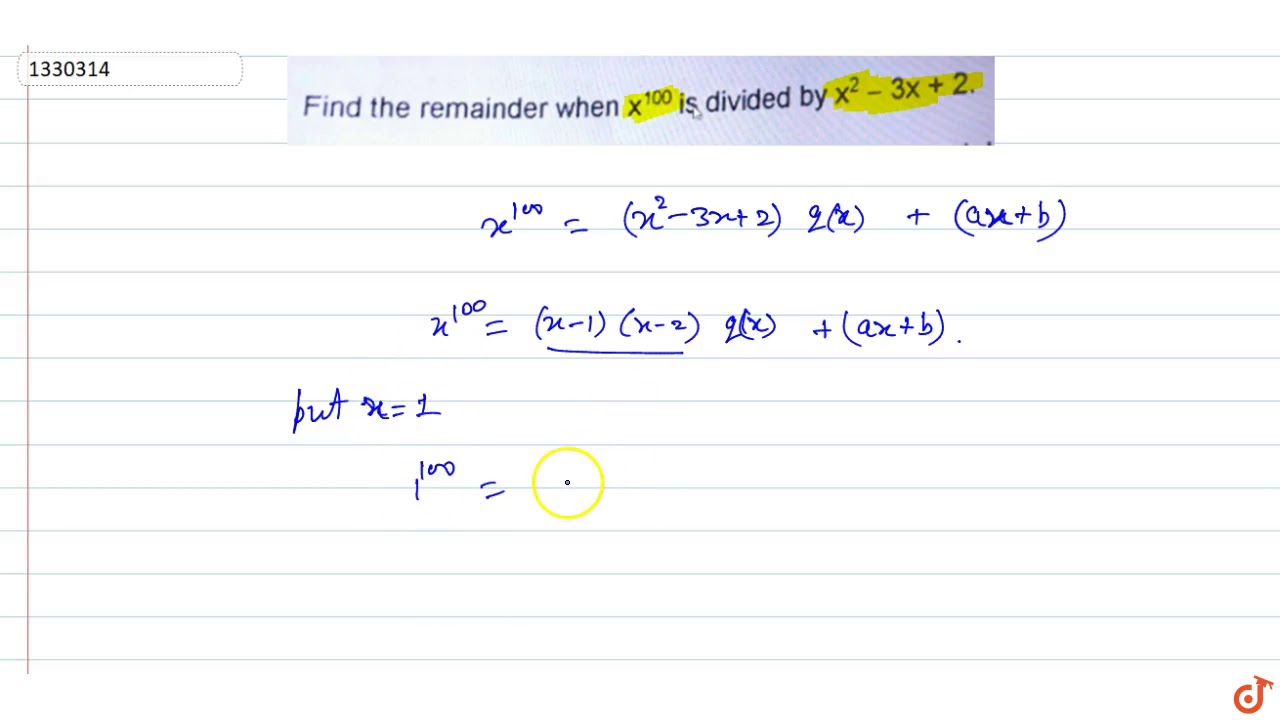 1330314
Find the remainder when x¹⁰⁰ is divided by x² – 3x + 2.
x¹⁰⁰ = (x²-3x+2) q(x) + (ax+b)
x¹⁰⁰ = (x-1) (x-2) q(x) + (ax+b).
put x=1
1¹⁰⁰ =